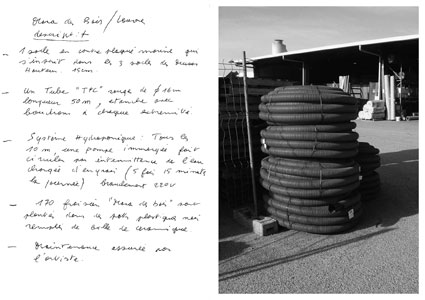 Mara des Bois / Louvre
descriptif
– 1 socle en contre plaqué mariné qui
s'inscrit dans les 3 socles du Museum
Hauteur 15cm.
– Un Tube "TPC" rouge de Ø 16cm
longueur 50m, étanche avec
bouchons à chaque extremité
– Système Hydroponique : Tous les
10 m une pompe immergée fait
circuler par intermittence de l'eau
chargée d'engrais (5 fois 15 minutes
la journée) branchement 220V
– 170 fraisiers "Mara des bois" sont
plantés dans des pots plastique noir
remplis de bille de céramique
– Maintenance assurée par
l'artiste.